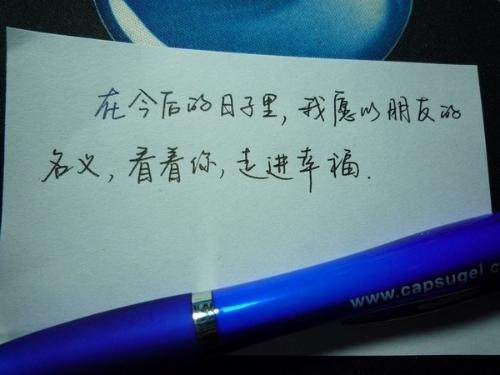 在今后的日子里，我愿以朋友的
名义，看着你，走进幸福.
www.capsugel.c